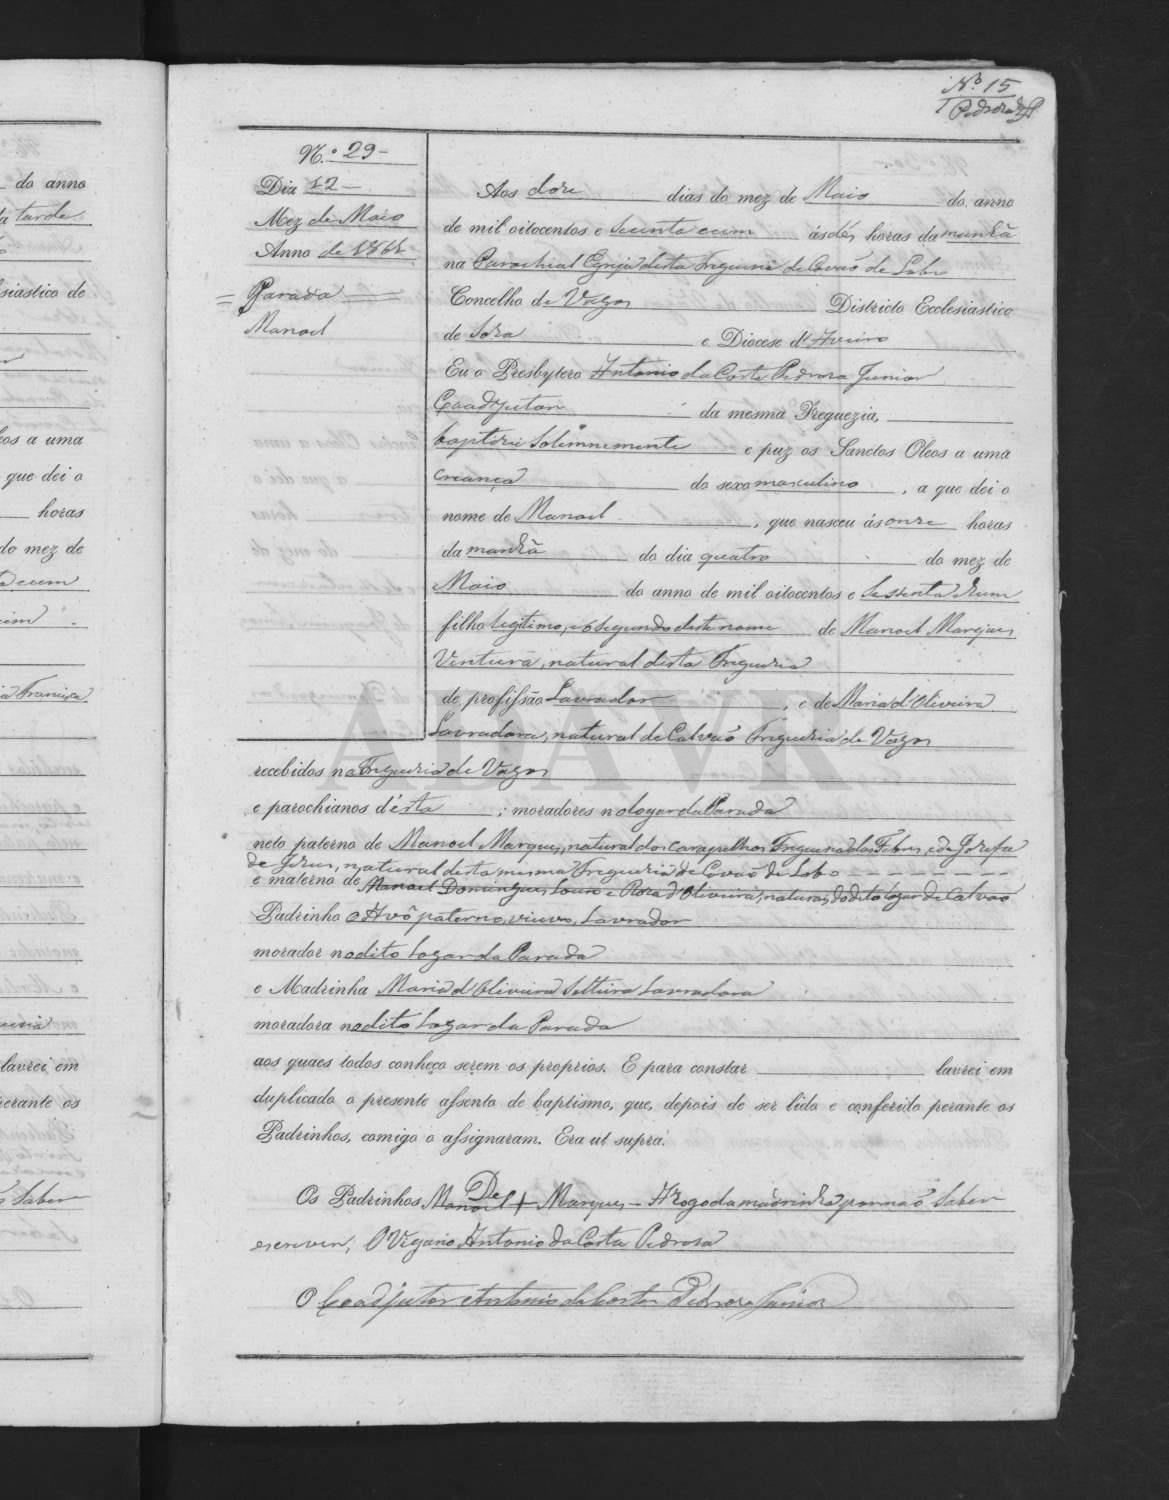 Nº 15
Pedroza Jr
do anno
da tarde
siastico de
eos a uma
que dei o
horas
do mez de
ta e um
ia Franisca
lavrei em
perante os
Saber
N.º 29 -
Dia 12 -
Mez de Maio
Anno de 1861
= Parada =
Manoel
Aos doze dias do mez de Maio do anno
de mil oitocentos e secenta eum ás dés horas da manhã
na Parochial Egreja desta Freguesia de Covão de Lobo
Concelho de Vagos Districto Ecclesiastico
de Soza e Diocese d'Aveiro
Eu o Presbytero Antonio da Costa Pedroza Junior
Coadjutor da mesma Freguezia,
baptizei Solemnemente e puz os Sanctos Oleos a uma
creança do sexo masculino, a que dei o
nome de Manoel, que nasceu ás onze horas
da manhã do dia quatro do mez de
Maio do anno de mil oitocentos e Sessenta e hum
filho legitimo, e o segundo deste nome de Manoel Marques
Ventura, natural desta Freguezia
de profissão Lavrador, e de Maria d'Oliveira
Lavradora, natural de Calvão Freguezia de Vagos
recebidos na Freguezia de Vagos
e parochianos d'ésta; moradores no logar da Parada
neto paterno de Manoel Marques, natural dos Carapelhos Freguezia das Febres, e de Jozefa
de Jesus, natural desta mesma Freguezia de Covão de Lobo - - - - - - - -
e materno de Manoel Domingues Louro e Roza d'Oliveira, naturaes do dito logar de Calvão
Padrinho o Avô paterno, viuvo, Lavrador
morador no dito Logar da Parada
e Madrinha Maria d'Oliveira Solteira Lavradora
moradora no dito Logar da Parada
aos quaes todos conheço serem os proprios. E para constar lavrei em
duplicado o presente assento de baptismo, que, depois de ser lido e conferido perante os
Padrinhos, comigo o assignaram. Era ut supra.
Os Padrinhos, De Manoel + Marques - A rogo da madrinha por não Saber
escrever, O Vigario Antonio da Costa Pedroza
O Coadjutor Antonio da Costa Pedroza Junior
ADAVR